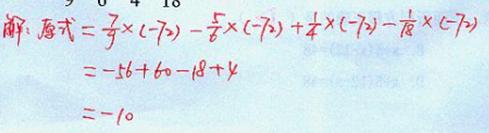 9 6 4 18
解：原式=7/9×(-72)-5/6×(-72)+1/4×(-72)-1/18×(-72)
=-56+60-18+4
=-10